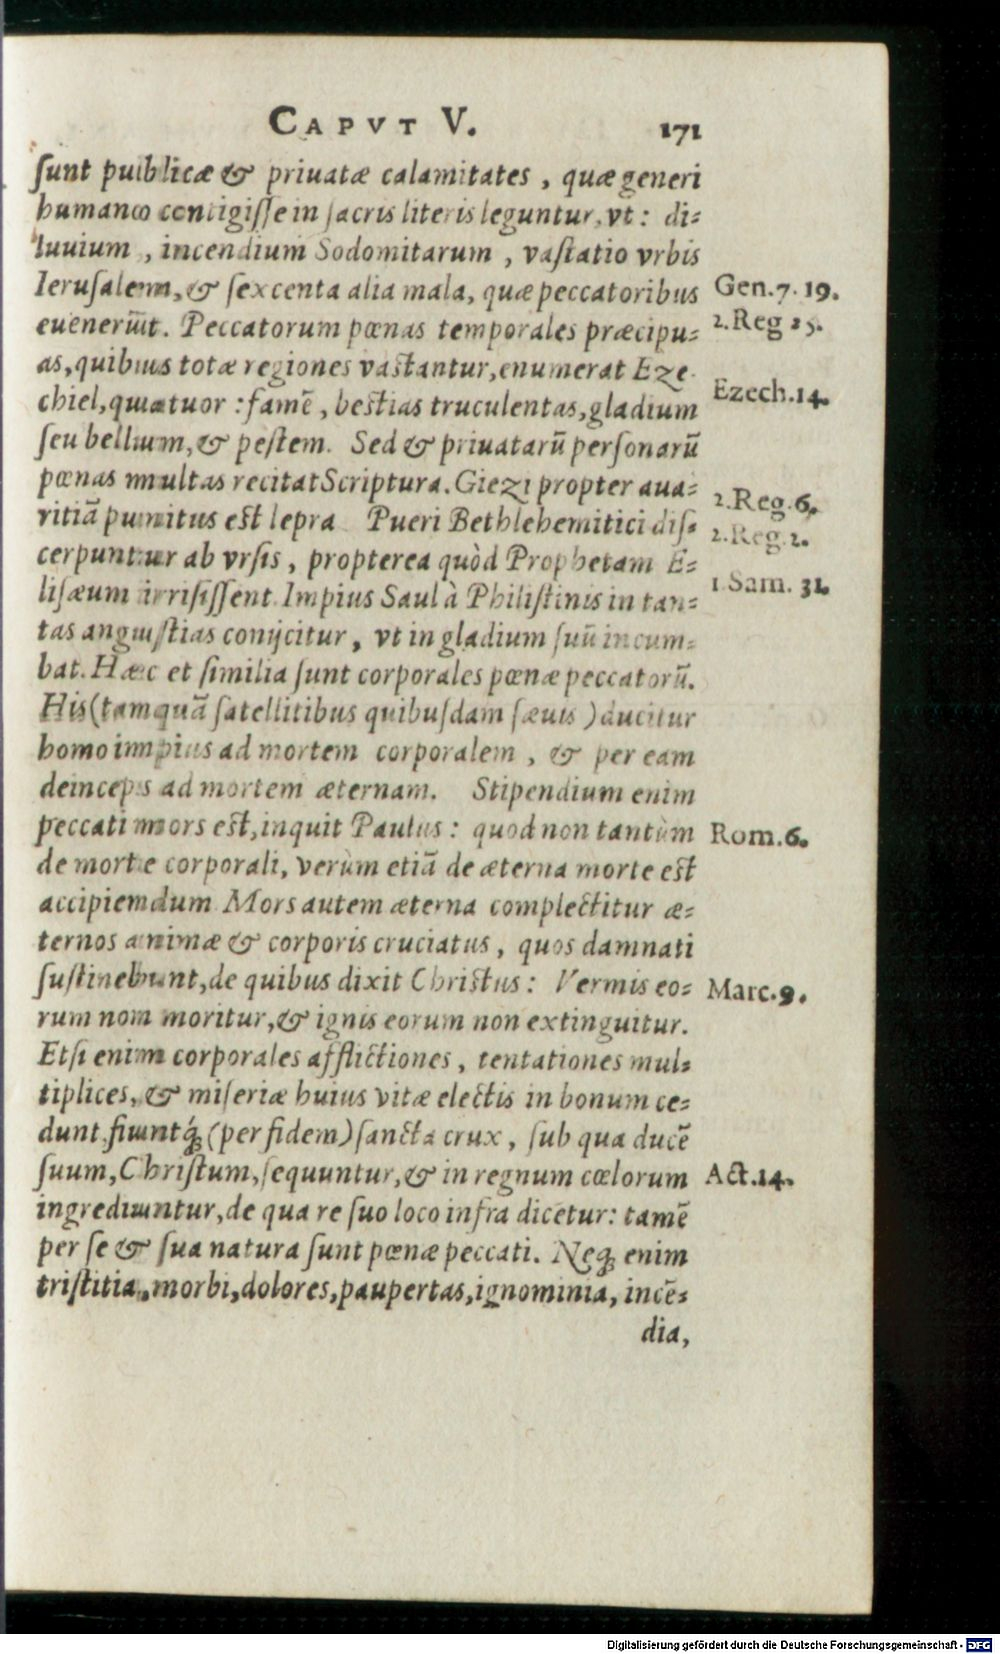 CAPVT V. 171
ſunt publicæ & priuatæ calamitates, quæ generi
humano contigiſſe in ſacris literis leguntur, vt: di-
luuium, incendium Sodomitarum, vaſtatio vrbis
Ieruſalem, & ſexcenta alia mala, quæ peccatoribus
Gen.7.19.
euenerūt. Peccatorum pœnas temporales præcipu-
2.Reg 25.
as, quibus totæ regiones vaſtantur, enumerat Eze
chiel, quatuor: famē, beſtias truculentas, gladium
Ezech.14.
ſeu bellum, & peſtem. Sed & priuatarū perſonarū
pœnas multas recitat Scriptura. Giezi propter aua-
2.Reg.6.
ritiā punitus eſt lepra Pueri Bethlehemitici diſ-
2.Reg.2.
cerpuntur ab vrſis, propterea quòd Prophetam E-
liſæum irriſiſſent. Impius Saul à Philiſtinis in tan-
1.Sam.31.
tas anguſtias conijcitur, vt in gladium ſuū incum-
bat. Hæc et ſimilia ſunt corporales pœnæ peccatorū.
His (tamquā ſatellitibus quibuſdam ſæuis) ducitur
homo impius ad mortem corporalem, & per eam
deinceps ad mortem æternam. Stipendium enim
peccati mors eſt, inquit Paulus: quod non tantùm
Rom.6.
de morte corporali, verùm etiā de æterna morte eſt
accipiendum Mors autem æterna complectitur æ-
ternos animæ & corporis cruciatus, quos damnati
ſuſtinebunt, de quibus dixit Chriſtus: Vermis eo-
Marc.9.
rum non moritur, & ignis eorum non extinguitur.
Etſi enim corporales afflictiones, tentationes mul-
tiplices, & miſeriæ huius vitæ electis in bonum ce-
dunt, fiuntq́; (per fidem) ſancta crux, ſub qua ducē
ſuum, Chriſtum, ſequuntur, & in regnum cœlorum
Act.14.
ingrediuntur, de qua re ſuo loco infra dicetur: tamē
per ſe & ſua natura ſunt pœnæ peccati. Neq; enim
triſtitia, morbi, dolores, paupertas, ignominia, incē-
dia,
Digitalisierung gefördert durch die Deutsche Forschungsgemeinschaft - DFG